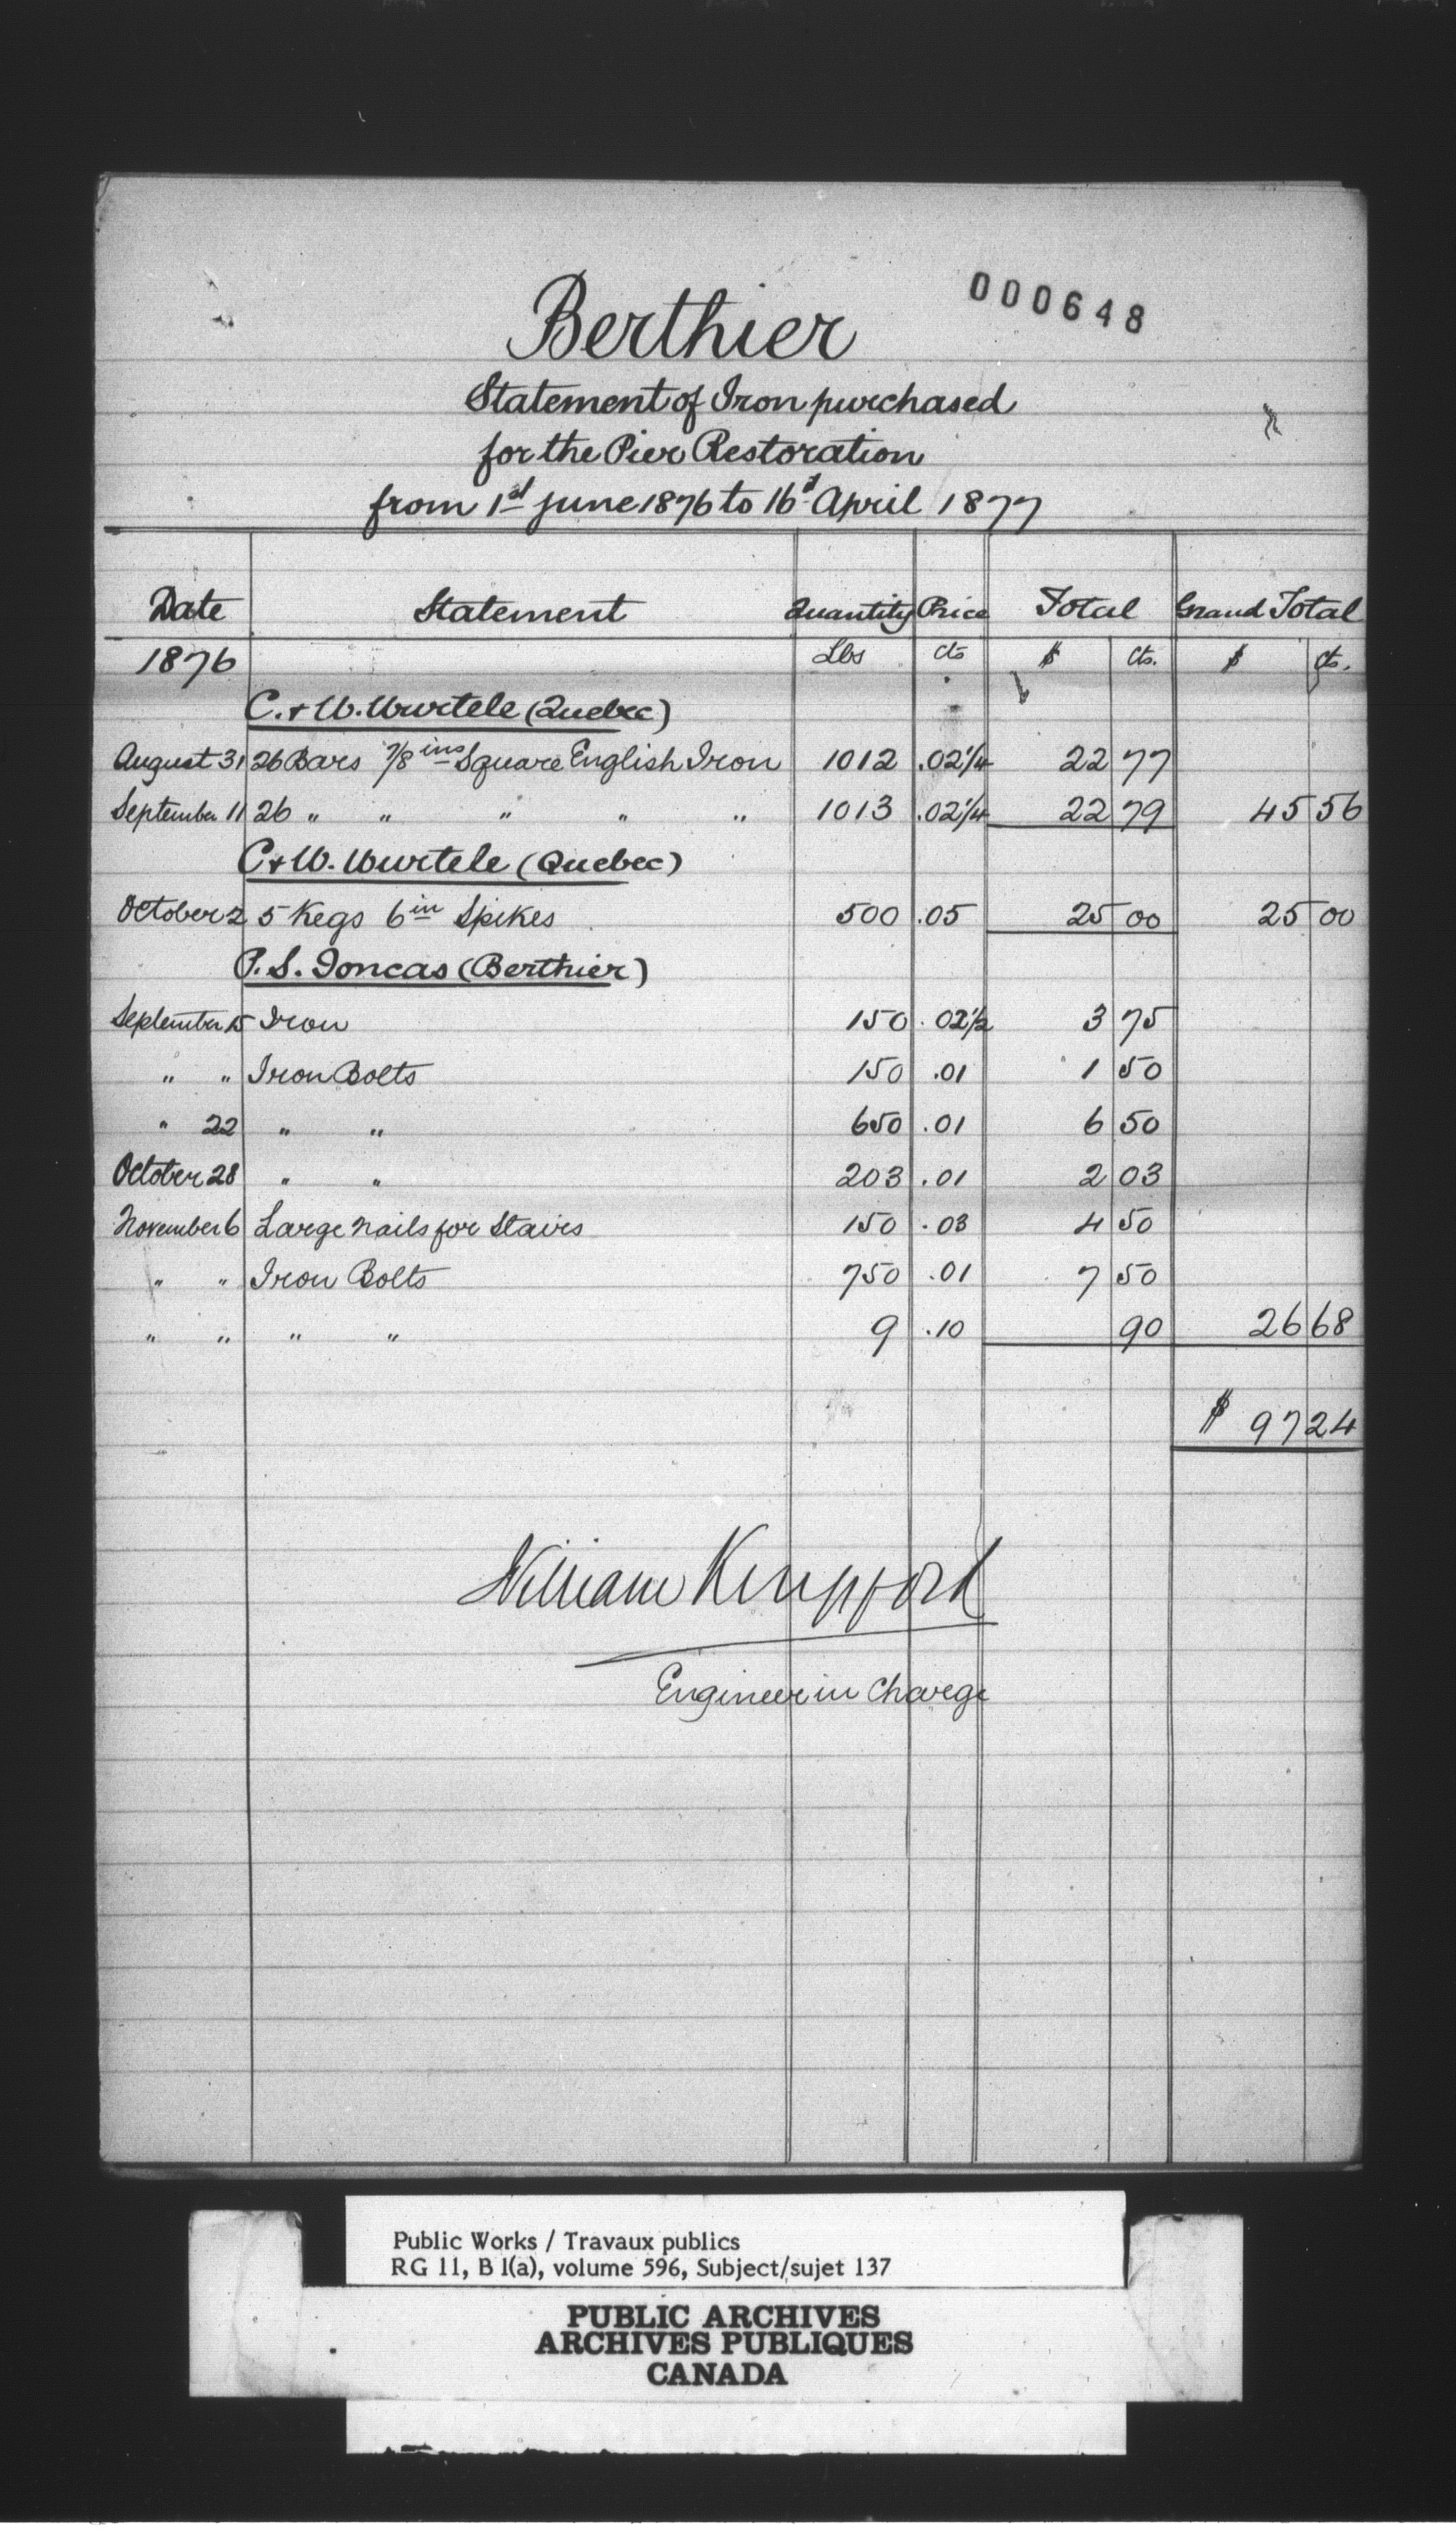 000648
Berthier
Statement of Iron purchased
for the Pier Restoration
from 1st June 1876 to 16d April 1877
Date Statement Quantity Price Total Grand Total
1876 Lbs cts $ cts. $ cts.
C. & W. Wurtele (Quebec)
August 31 26 Bars 7/8 ins Square English Iron 1012 .02 1/4 22 77
September 11 26 " " " " " 1013 .02 1/4 22 79 45 56
C & W. Wurtele (Quebec)
October 2 5 Kegs 6 in Spikes 500 .05 25 00 25 00
P. S. Joncas (Berthier)
September 15 Iron 150 .02 1/2 3 75
" " Iron Bolts 150 .01 1 50
" 22 " " 650 .01 6 50
October 28 " " 203 .01 2 03
November 6 Large nails for Stairs 150 .03 4 50
" " Iron Bolts 750 .01 7 50
" " " " 9 .10 90 26 68
$ 97 24
William Kingsford
Engineer in Charge
Public Works / Travaux publics
RG 11, B 1(a), volume 596, Subject/sujet 137
PUBLIC ARCHIVES
ARCHIVES PUBLIQUES
CANADA